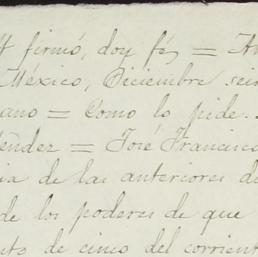 firmó, doy fé, =
México, Diciembre seis
ano = Como lo pide.
éndez = José Francisco
ia de las anteriores de
de los poderes de que
to de cinco del corrient